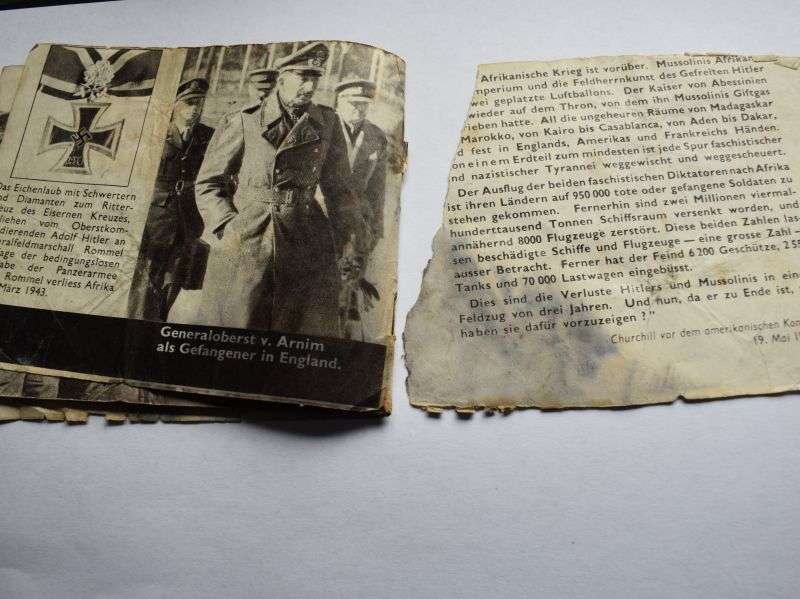 Das Eichenlaub mit Schwertern
nd Diamanten zum Ritter-
euz des Eisernen Kreuzes,
liehen vom Oberstkom-
dierenden Adolf Hitler an
eralfeldmarschall Rommel
age der bedingungslosen
abe der Panzerarmee
Rommel verliess Afrika
März 1943.
Generaloberst v. Arnim
als Gefangener in England.
Afrikanische Krieg ist vorüber. Mussolinis Afrikan
mperium und die Feldherrnkunst des Gefreiten Hitler
wei geplatzte Luftballons. Der Kaiser von Abessinien
wieder auf dem Thron, von dem ihn Mussolinis Giftgas
rieben hatte. All die ungeheuren Räume von Madagaskar
Marokko, von Kairo bis Casablanca, von Aden bis Dakar,
d fest in Englands, Amerikas und Frankreichs Händen.
on einem Erdteil zum mindesten ist jede Spur faschistischer
nd nazistischer Tyrannei weggewischt und weggescheuert.
Der Ausflug der beiden faschistischen Diktatoren nach Afrika
ist ihren Ländern auf 950 000 tote oder gefangene Soldaten zu
stehen gekommen. Fernerhin sind zwei Millionen viermal-
hunderttausend Tonnen Schiffsraum versenkt worden, und
annähernd 8000 Flugzeuge zerstört. Diese beiden Zahlen las
sen beschädigte Schiffe und Flugzeuge — eine grosse Zahl —
ausser Betracht. Ferner hat der Feind 6 200 Geschütze, 2 55
Tanks und 70 000 Lastwagen eingebüsst.
Dies sind die Verluste Hitlers und Mussolinis in ein
Feldzug von drei Jahren. Und nun, da er zu Ende ist,
haben sie dafür vorzuzeigen ?"
Churchill vor dem amerikanischen Kon
19. Mai 1